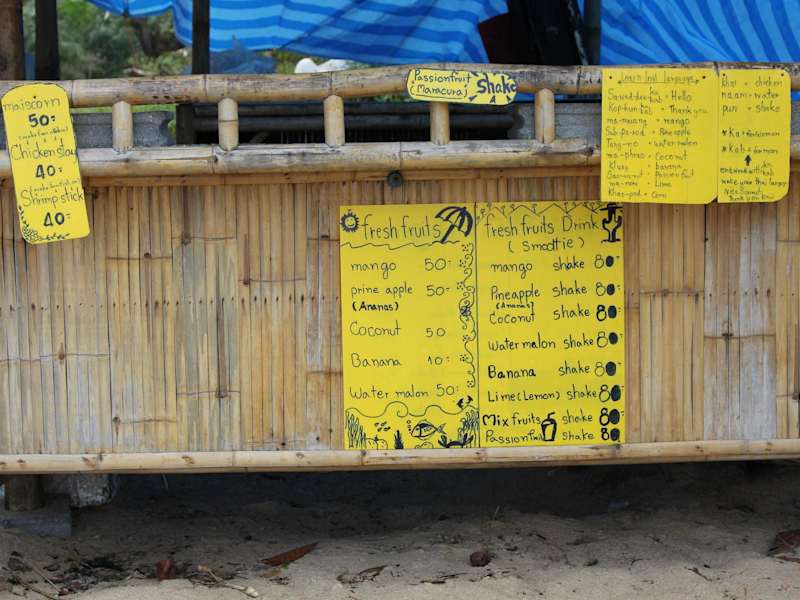 maiscorn
50:-
Chicken stay
40:-
Shrimp stick
40:-
Passionfruit
(Maracura) Shake
Learn Thai language
= Hello
= Thank you
ma-muang = mango
Sub-pa-rod = Pineapple
Tang-mo = water melon
ma-phrao = Coconut
Kluay = banana
= Passionfruit
ma-now = Lime
= Corn
= chicken
naam = water
pun = shake
* Ka =
* Kab = for man
Thank you
fresh fruits
mango 50:-
prine apple 50:-
(Ananas)
Coconut 50
Banana 10:-
Water malon 50:-
fresh fruits Drink
(Smottie)
mango shake 80:-
Pineapple shake 80:-
(Ananas)
Coconut shake 80:-
Water malon shake 80:-
Banana shake 80:-
Lime (Lemon) shake 80:-
Mix fruits shake 80:-
Passionfruit shake 80:-